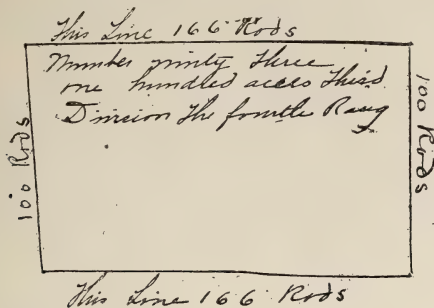 This Line 166 Rods
Number ninty three
one hundred acers Third
Division The fourth Rang
100 Rods
100 Rods
This Line 166 Rods